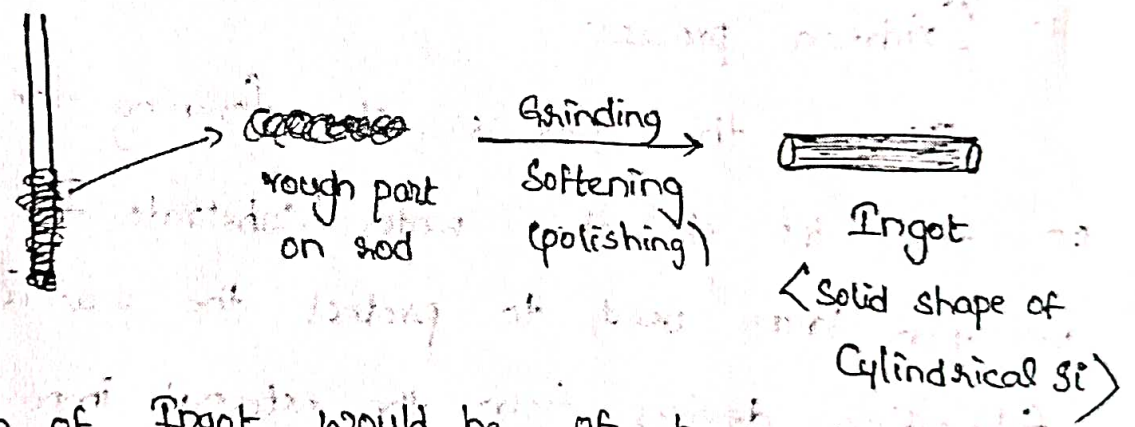 rough part
on rod
Grinding
Softening
(polishing)
Ingot
<Solid shape of
Cylindrical Si>
of Ingot would be of